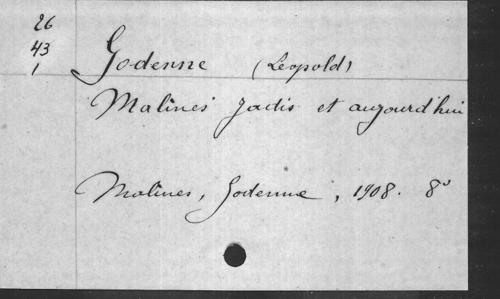 26
43
1
Godenne (Léopold)
Malines jadis et aujourd'hui
Malines, Godenne, 1908. 8°